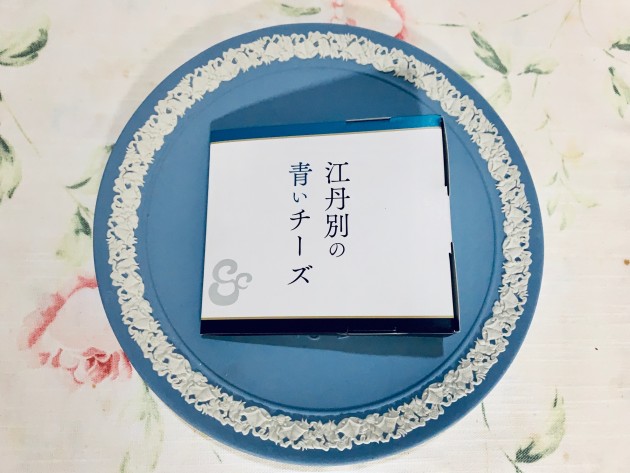 江丹別の
青いチーズ
&